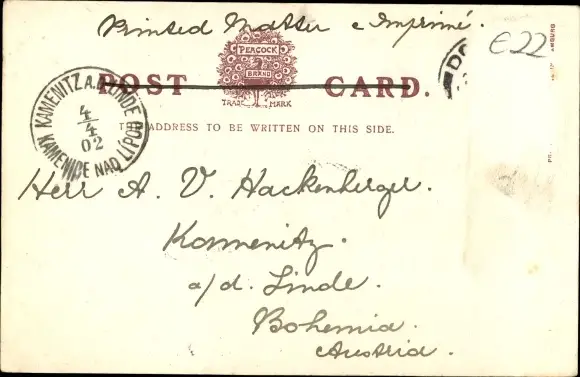 Printed Matter e Imprimé.
€22
PEACOCK
BRAND
POST CARD.
TRADE MARK
KAMENITZ A.D. LINDE
4/4
02
KAMENICE NAD LIPOU
THE ADDRESS TO BE WRITTEN ON THIS SIDE.
Herr A. V. Hackenberger.
Kamenitz.
a/d. Linde.
Bohemia.
Austria.